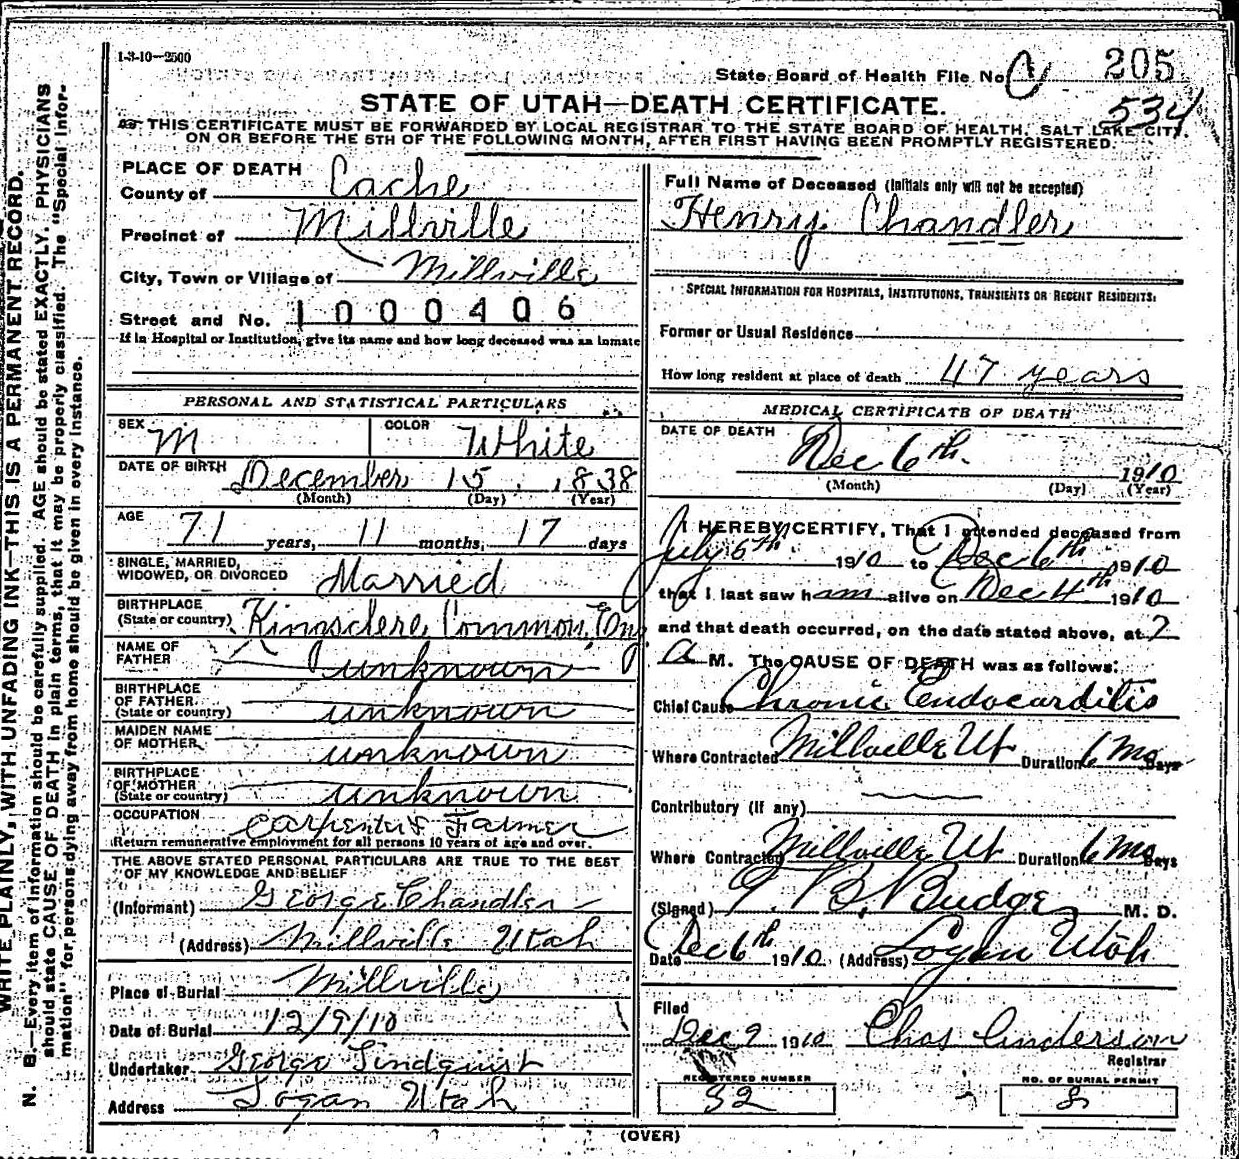 1-3-10—2500
State Board of Health File No. C 205
534
STATE OF UTAH—DEATH CERTIFICATE.
THIS CERTIFICATE MUST BE FORWARDED BY LOCAL REGISTRAR TO THE STATE BOARD OF HEALTH, SALT LAKE CITY,
ON OR BEFORE THE 5TH OF THE FOLLOWING MONTH, AFTER FIRST HAVING BEEN PROMPTLY REGISTERED.
WRITE PLAINLY, WITH UNFADING INK—THIS IS A PERMANENT RECORD.
N. B.—Every item of information should be carefully supplied. AGE should be stated EXACTLY. PHYSICIANS
should state CAUSE OF DEATH in plain terms, that it may be properly classified. The "Special Infor-
mation" for persons dying away from home should be given in every instance.
PLACE OF DEATH
County of Cache
Precinct of Millville
City, Town or Village of Millville
Street and No. 1000406
If in Hospital or Institution, give its name and how long deceased was an inmate
PERSONAL AND STATISTICAL PARTICULARS
SEX M COLOR White
DATE OF BIRTH December 15, 1838
(Month) (Day) (Year)
AGE 71 years, 11 months, 17 days
SINGLE, MARRIED,
WIDOWED, OR DIVORCED Married
BIRTHPLACE
(State or country) Kingsclere Common, Eng
NAME OF
FATHER unknown
BIRTHPLACE
OF FATHER
(State or country) unknown
MAIDEN NAME
OF MOTHER unknown
BIRTHPLACE
OF MOTHER
(State or country) unknown
OCCUPATION Carpenter & Farmer
Return remunerative employment for all persons 10 years of age and over.
THE ABOVE STATED PERSONAL PARTICULARS ARE TRUE TO THE BEST
OF MY KNOWLEDGE AND BELIEF
(Informant) George Chandler
(Address) Millville Utah
Place of Burial Millville
Date of Burial 12/9/10
Undertaker George Lindquist
Address Logan Utah
Full Name of Deceased (Initials only will not be accepted)
Henry Chandler
SPECIAL INFORMATION FOR HOSPITALS, INSTITUTIONS, TRANSIENTS OR RECENT RESIDENTS:
Former or Usual Residence
How long resident at place of death 47 years
MEDICAL CERTIFICATE OF DEATH
DATE OF DEATH Dec 6th. 1910
(Month) (Day) (Year)
I HEREBY CERTIFY, That I attended deceased from
July 6th 1910 to Dec 6th 1910
that I last saw ham alive on Dec 4th 1910
and that death occurred, on the date stated above, at 2
a M. The CAUSE OF DEATH was as follows:
Chief Cause Chronic Endocarditis
Where Contracted Millville Ut Duration 6 Mo Days
Contributory (if any)
Where Contracted Millville Ut Duration 6 Mo Days
(Signed) T. B. Budge M. D.
Date Dec 6th 1910 (Address) Logan Utah
Filed
Dec 9 1910 Chas Anderson
Registrar
REGISTERED NUMBER
32
NO. OF BURIAL PERMIT
8
(OVER)